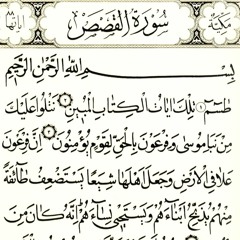 مكية
سورة القصص
آياتها ٨٨
بسم الله الرحمن الرحيم
طسم ۝ تلك ءايات الكتاب المبين ۝ نتلوا عليك
من نبإ موسى وفرعون بالحق لقوم يؤمنون ۝ إن فرعون
علا في الأرض وجعل أهلها شيعا يستضعف طائفة
منهم يذبح أبناءهم ويستحي نساءهم إنه كان من